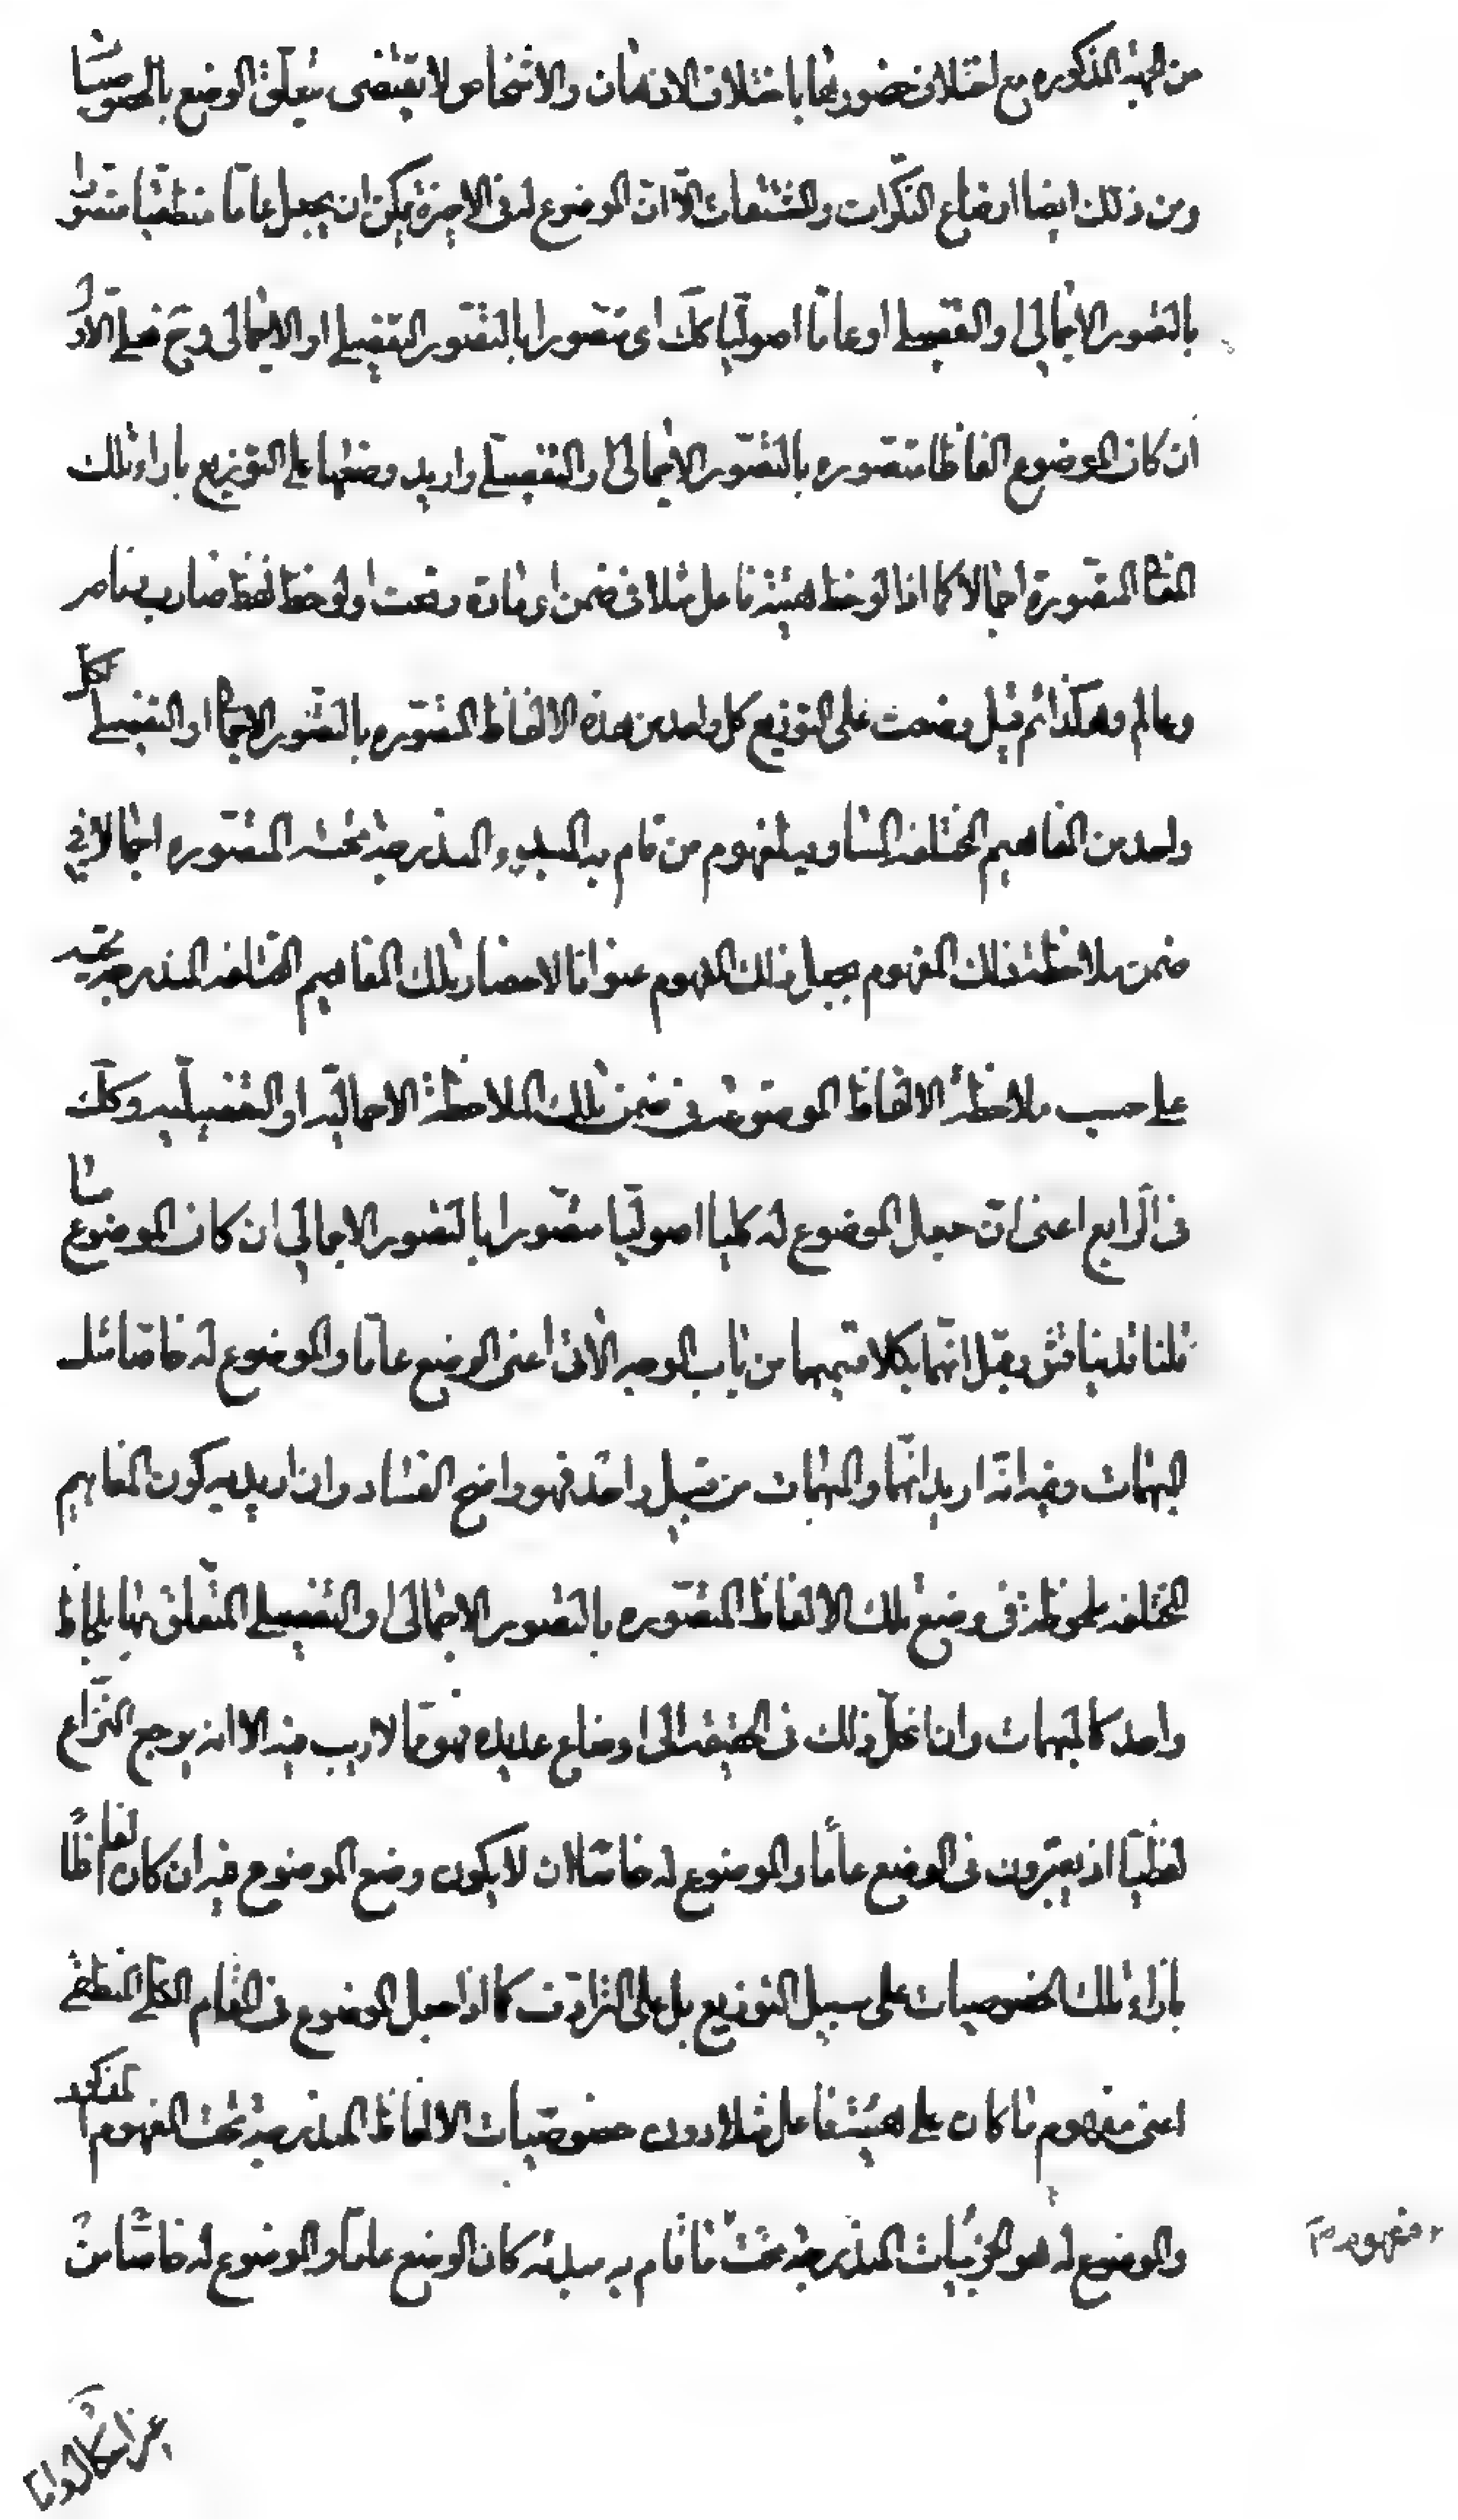 من الجهة المذكوره مع اختلاف حضورها باختلاف الاذهان والاشخاص لا يقتضى تعلق الوضع بالخصوصيات
ومن ذلك ايضا اوضاع النكرات والمشتقات الّا انّ الموضوع له فى الاخيرة يمكن ان يجعل عامّا منطقيّا متصوّرا
بالتصور الاجمالى او التفصيلے او عامّا اصوليّا كك اى متصورا بالتصور التفصيلے او الاجمالى وح فعلے الاوّل
ان كان الموضوع الفاظا متصوره بالتصوّر الاجمالى او التفصيلے واريد وضعها علے التوزيع بازاء تلك
المفاهيم المتصورة اجمالا كما اذا لوحظ هيئة فاعل مثلا فى ضمن اى مادة وقعت او لوحظ لفظ ضارب وناصر
وعالم وهكذا ثم قيل وضعت على التوزيع كل واحد من هذه الالفاظ المتصوره بالتصور الاجمالى او التفصيلے لكل
واحد من المفاهيم المختلفه المساويه لمفهوم من قام به المبدء والمندرجة تحته المتصوره اجمالا فى
ضمن ملاحظة ذلك المفهوم بجعل ذلك المفهوم عنوانا لاحضار تلك المفاهيم المختلفه المندرجه تحته
علے حسب ملاحظة الالفاظ الموضوعة فى ضمن تلك الملاحظة الاجماليّه او التفصيليه وكك
فى الرابع اعنى ان جعل الموضوع له كليا اصوليّا متصورا بالتصور الاجمالى ان كان الموضوع
قلنا فقد يقال انهما بكلا قسميهما من باب الوجه الاول اعنى الوضع عامّا والموضوع له خاصا مثل
المبهمات وفيه انه اريد انّهما والمبهمات من قبيل واحد فهو واضح الفساد وان اريد به كون المفاهيم
المختلفه ملحوظة فى وضع تلك الالفاظ المتصوره بالتصور الاجمالى او التفصيلے المتعلق بها بلحاظ
واحد كالمبهمات وان انحلّ ذلك فى الحقيقة الى اوضاع عديده فهو ممّا لا ريب فيه الا انه يرجع النزاع
لفظيّا اذ يعتبرون فى الوضع عامّا والموضوع له خاصّا ان لا يكون وضع الموضوع فيه ان كان الفاظًا
بازاء تلك الخصوصيات على سبيل التوزيع بل على الترادف كما اذا جعل الموضوع فى المقام الكلے المنطقے
اعنى مفهوم ما كان علے هيئة فاعل مثلا دون خصوصيّات الالفاظ المندرجة تحت المفهوم المذكور
والموضوع له هو الجزئيات المندرجة تحت ما قام به مبدئه كان الوضع عامّا والموضوع له خاصّا من
مفهوم